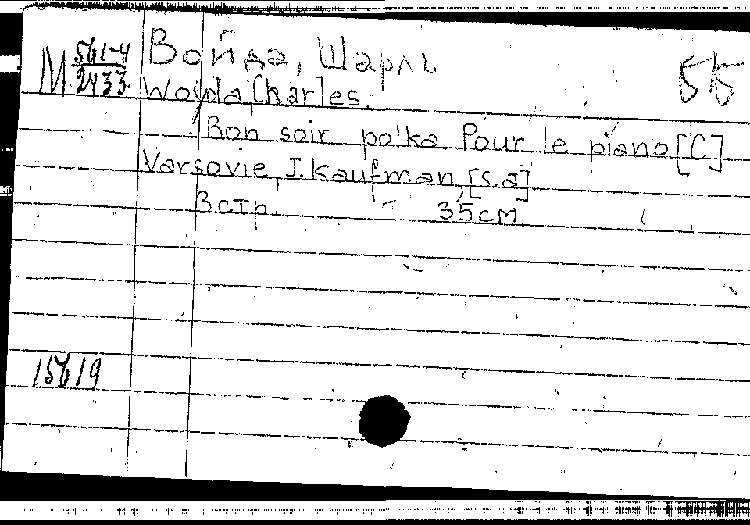 Войда, Шарль
55
М 561-4
2433
Woyda Charles.
Bon soir polka Pour le piano [C]
Varsovie, J. Kaufman, [s.a]
3 стр. - 35 см
15619